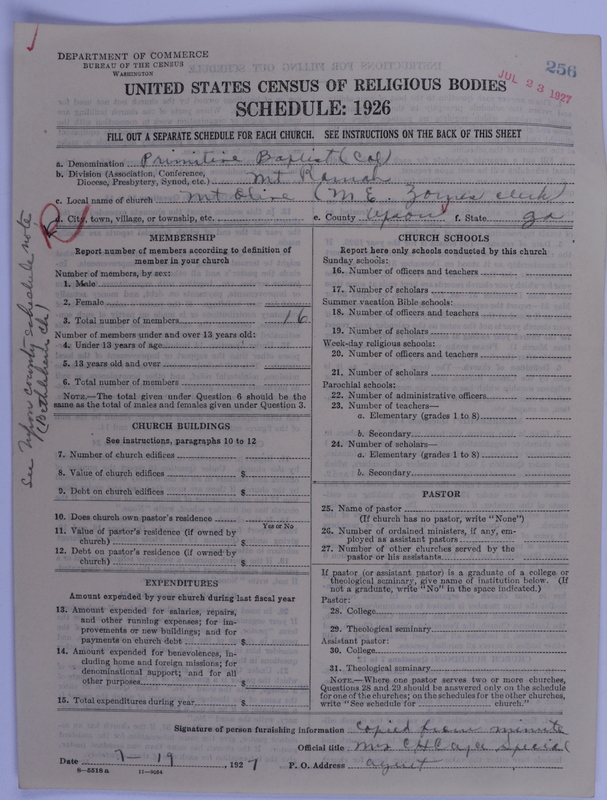 256
JUL 23 1927
DEPARTMENT OF COMMERCE
BUREAU OF THE CENSUS
WASHINGTON
UNITED STATES CENSUS OF RELIGIOUS BODIES
SCHEDULE: 1926
FILL OUT A SEPARATE SCHEDULE FOR EACH CHURCH. SEE INSTRUCTIONS ON THE BACK OF THIS SHEET
a. Denomination Primitive Baptist (Col)
b. Division (Association, Conference,
Diocese, Presbytery, Synod, etc.) Mt Ramah
c. Local name of church Mt Olive (M. E. clerk
d. City, town, village, or township, etc. e. County Upson f. State Ga
See Upson county schedule note
(Bethlehem ch)
MEMBERSHIP
Report number of members according to definition of
member in your church
Number of members, by sex:
1. Male
2. Female
3. Total number of members 16
Number of members under and over 13 years old:
4. Under 13 years of age
5. 13 years old and over
6. Total number of members
NOTE.—The total given under Question 6 should be the
same as the total of males and females given under Question 3.
CHURCH BUILDINGS
See instructions, paragraphs 10 to 12
7. Number of church edifices
8. Value of church edifices $
9. Debt on church edifices $
10. Does church own pastor's residence
Yes or No
11. Value of pastor's residence (if owned by
church) $
12. Debt on pastor's residence (if owned by
church) $
EXPENDITURES
Amount expended by your church during last fiscal year
13. Amount expended for salaries, repairs,
and other running expenses; for im-
provements or new buildings; and for
payments on church debt $
14. Amount expended for benevolences, in-
cluding home and foreign missions; for
denominational support; and for all
other purposes $
15. Total expenditures during year $
CHURCH SCHOOLS
Report here only schools conducted by this church
Sunday schools:
16. Number of officers and teachers
17. Number of scholars
Summer vacation Bible schools:
18. Number of officers and teachers
19. Number of scholars
Week-day religious schools:
20. Number of officers and teachers
21. Number of scholars
Parochial schools:
22. Number of administrative officers
23. Number of teachers—
a. Elementary (grades 1 to 8)
b. Secondary
24. Number of scholars—
a. Elementary (grades 1 to 8)
b. Secondary
PASTOR
25. Name of pastor
(If church has no pastor, write "None")
26. Number of ordained ministers, if any, em-
ployed as assistant pastors
27. Number of other churches served by the
pastor or his assistants
If pastor (or assistant pastor) is a graduate of a college or
theological seminary, give name of institution below. (If
not a graduate, write "No" in the space indicated.)
Pastor:
28. College
29. Theological seminary
Assistant pastor:
30. College
31. Theological seminary
NOTE.—Where one pastor serves two or more churches,
Questions 28 and 29 should be answered only on the schedule
for one of the churches; on the schedules for the other churches,
write "See schedule for church."
Signature of person furnishing information Copied from minute
Official title Mrs Special
Date 7-19, 1927 P. O. Address agent
8-5518a 11-9584